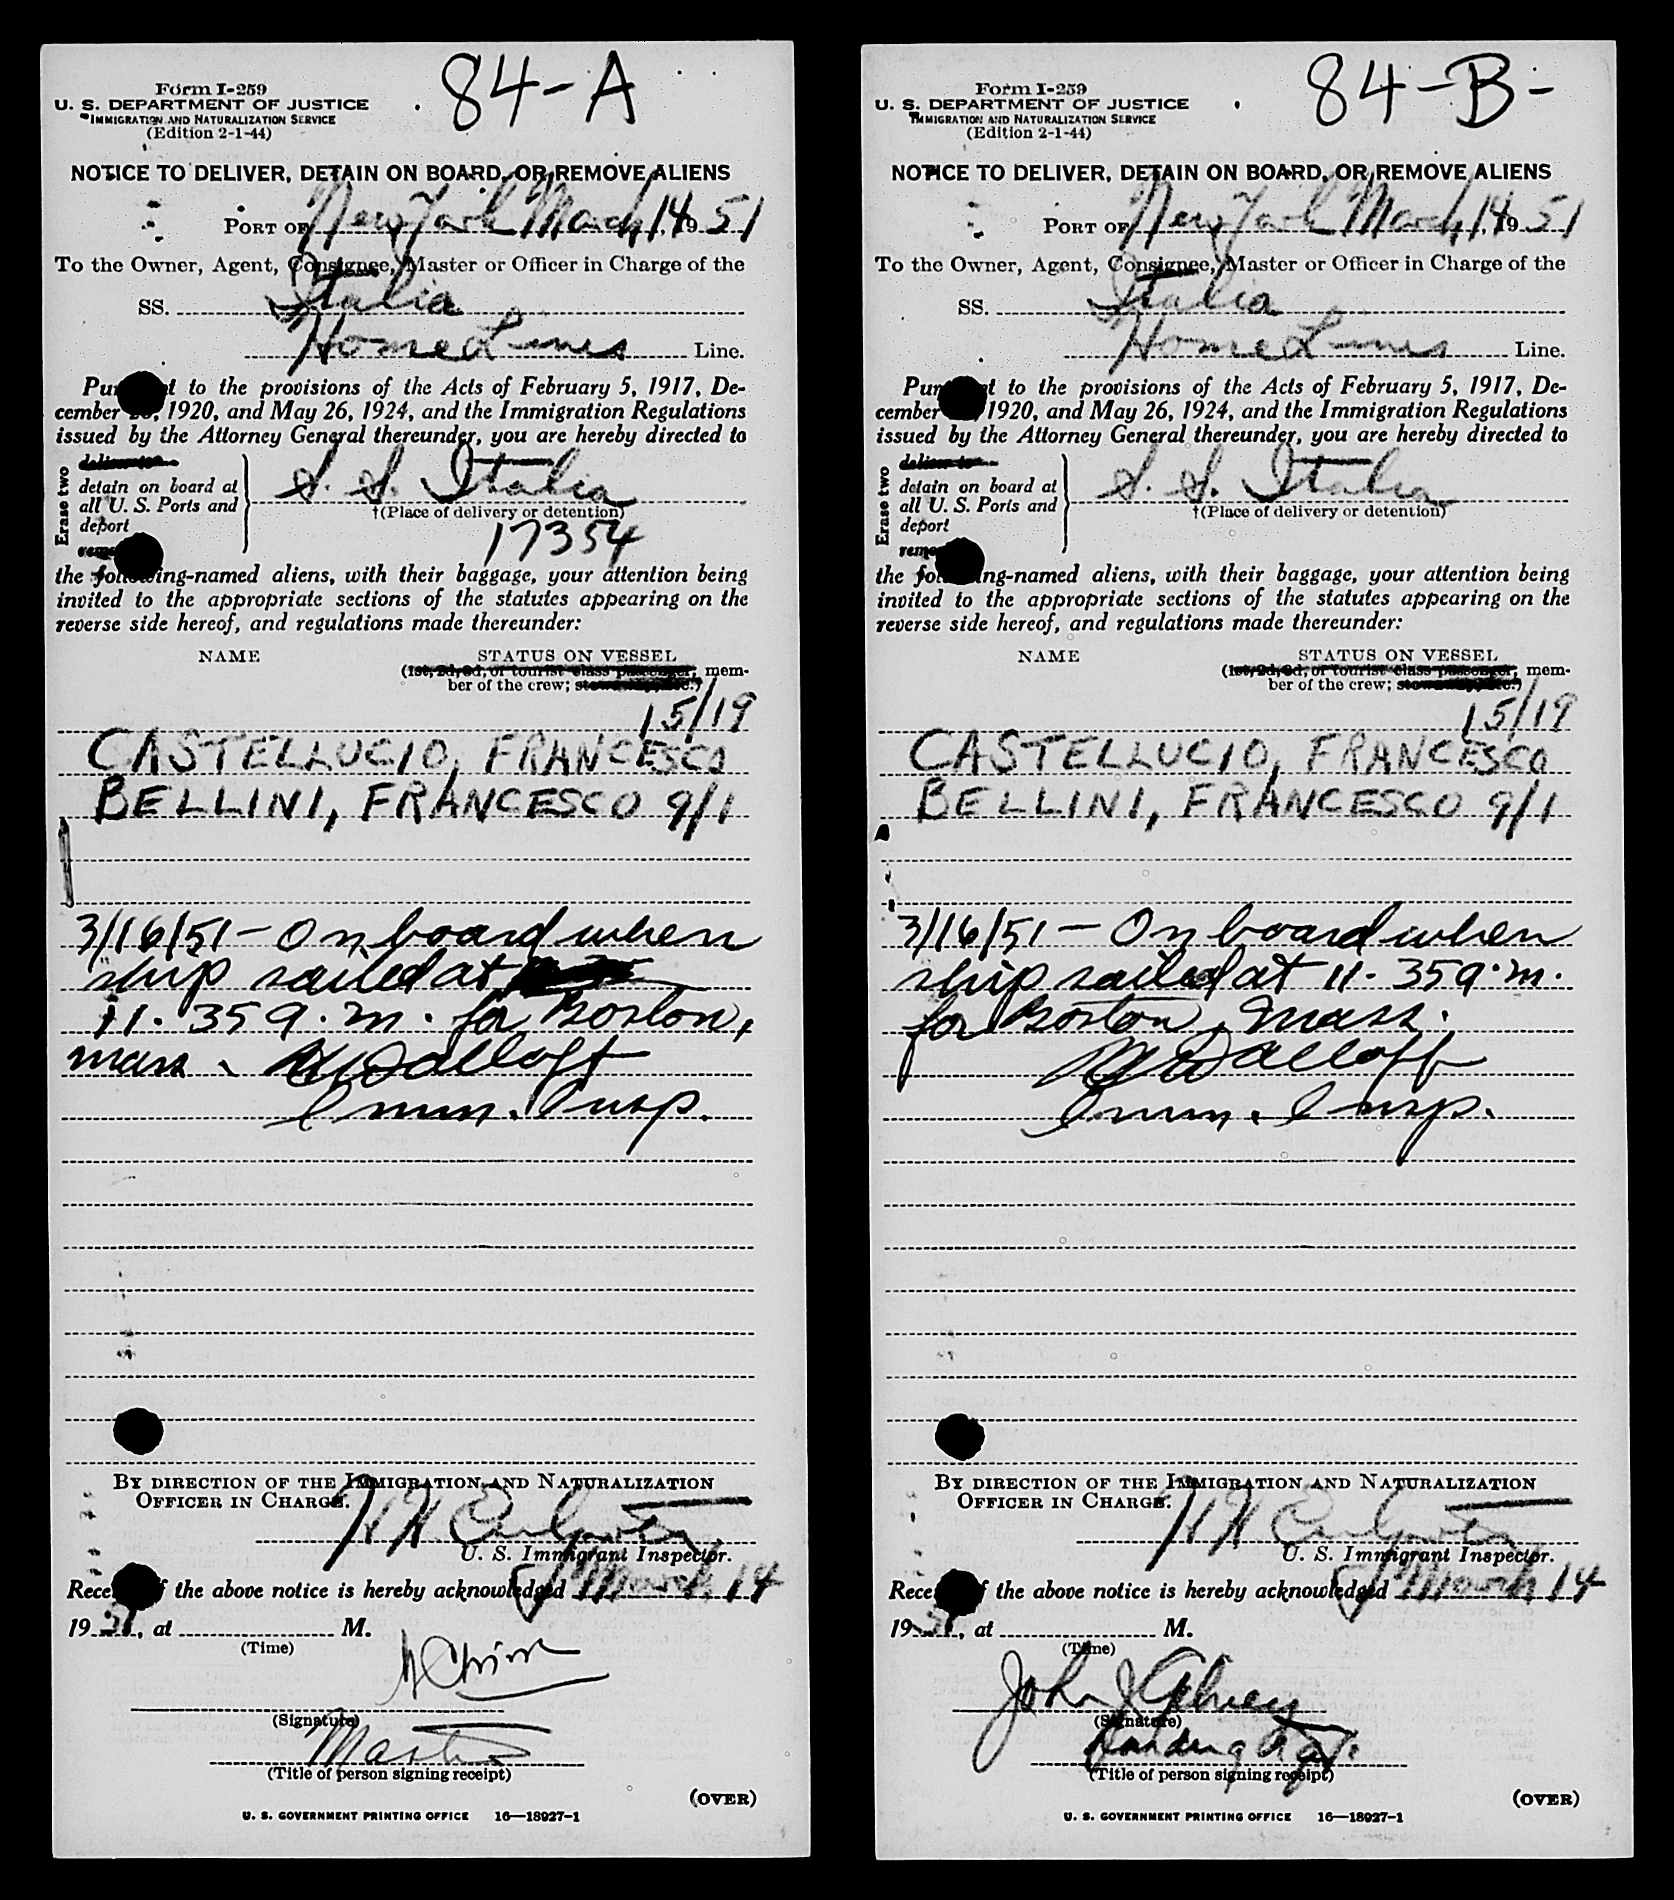 84-A
Form I-259
U. S. DEPARTMENT OF JUSTICE
IMMIGRATION AND NATURALIZATION SERVICE
(Edition 2-1-44)
NOTICE TO DELIVER, DETAIN ON BOARD, OR REMOVE ALIENS
PORT OF New York March 14, 1951
To the Owner, Agent, Consignee, Master or Officer in Charge of the
SS. Italia
Home Lines Line.
Pursuant to the provisions of the Acts of February 5, 1917, De-
cember 26, 1920, and May 26, 1924, and the Immigration Regulations
issued by the Attorney General thereunder, you are hereby directed to
Erase two
deliver to
detain on board at
all U. S. Ports and
deport
remove
S. S. Italia
†(Place of delivery or detention)
17354
the following-named aliens, with their baggage, your attention being
invited to the appropriate sections of the statutes appearing on the
reverse side hereof, and regulations made thereunder:
NAME STATUS ON VESSEL
(1st, 2d, 3d, or tourist class passenger, mem-
ber of the crew;
15/19
CASTELLUCIO, FRANCESCO
BELLINI, FRANCESCO 9/1
3/16/51 - On board when
ship sailed at
11.35 a.m. for Boston,
Mass.
Imm. Insp.
BY DIRECTION OF THE IMMIGRATION AND NATURALIZATION
OFFICER IN CHARGE.
U. S. Immigrant Inspector.
Receipt of the above notice is hereby acknowledged March 14
1951, at M.
(Time)
(Signature)
Master
(Title of person signing receipt)
(OVER)
U. S. GOVERNMENT PRINTING OFFICE 16—18927-1
84-B-
Form I-259
U. S. DEPARTMENT OF JUSTICE
IMMIGRATION AND NATURALIZATION SERVICE
(Edition 2-1-44)
NOTICE TO DELIVER, DETAIN ON BOARD, OR REMOVE ALIENS
PORT OF New York March 14, 1951
To the Owner, Agent, Consignee, Master or Officer in Charge of the
SS. Italia
Home Lines Line.
Pursuant to the provisions of the Acts of February 5, 1917, De-
cember 1920, and May 26, 1924, and the Immigration Regulations
issued by the Attorney General thereunder, you are hereby directed to
Erase two
deliver to
detain on board at
all U. S. Ports and
deport
remove
S. S. Italia
†(Place of delivery or detention)
the following-named aliens, with their baggage, your attention being
invited to the appropriate sections of the statutes appearing on the
reverse side hereof, and regulations made thereunder:
NAME STATUS ON VESSEL
(1st, 2d, 3d, or tourist class passenger, mem-
ber of the crew;
15/19
CASTELLUCIO, FRANCESCO
BELLINI, FRANCESCO 9/1
3/16/51 - On board when
ship sailed at 11.35 a.m.
for Boston, Mass.
Imm. Insp.
BY DIRECTION OF THE IMMIGRATION AND NATURALIZATION
OFFICER IN CHARGE.
U. S. Immigrant Inspector.
Receipt of the above notice is hereby acknowledged March 14
1951, at M.
(Time)
John J
(Signature)
Boarding Agt.
(Title of person signing receipt)
(OVER)
U. S. GOVERNMENT PRINTING OFFICE 16—18927-1